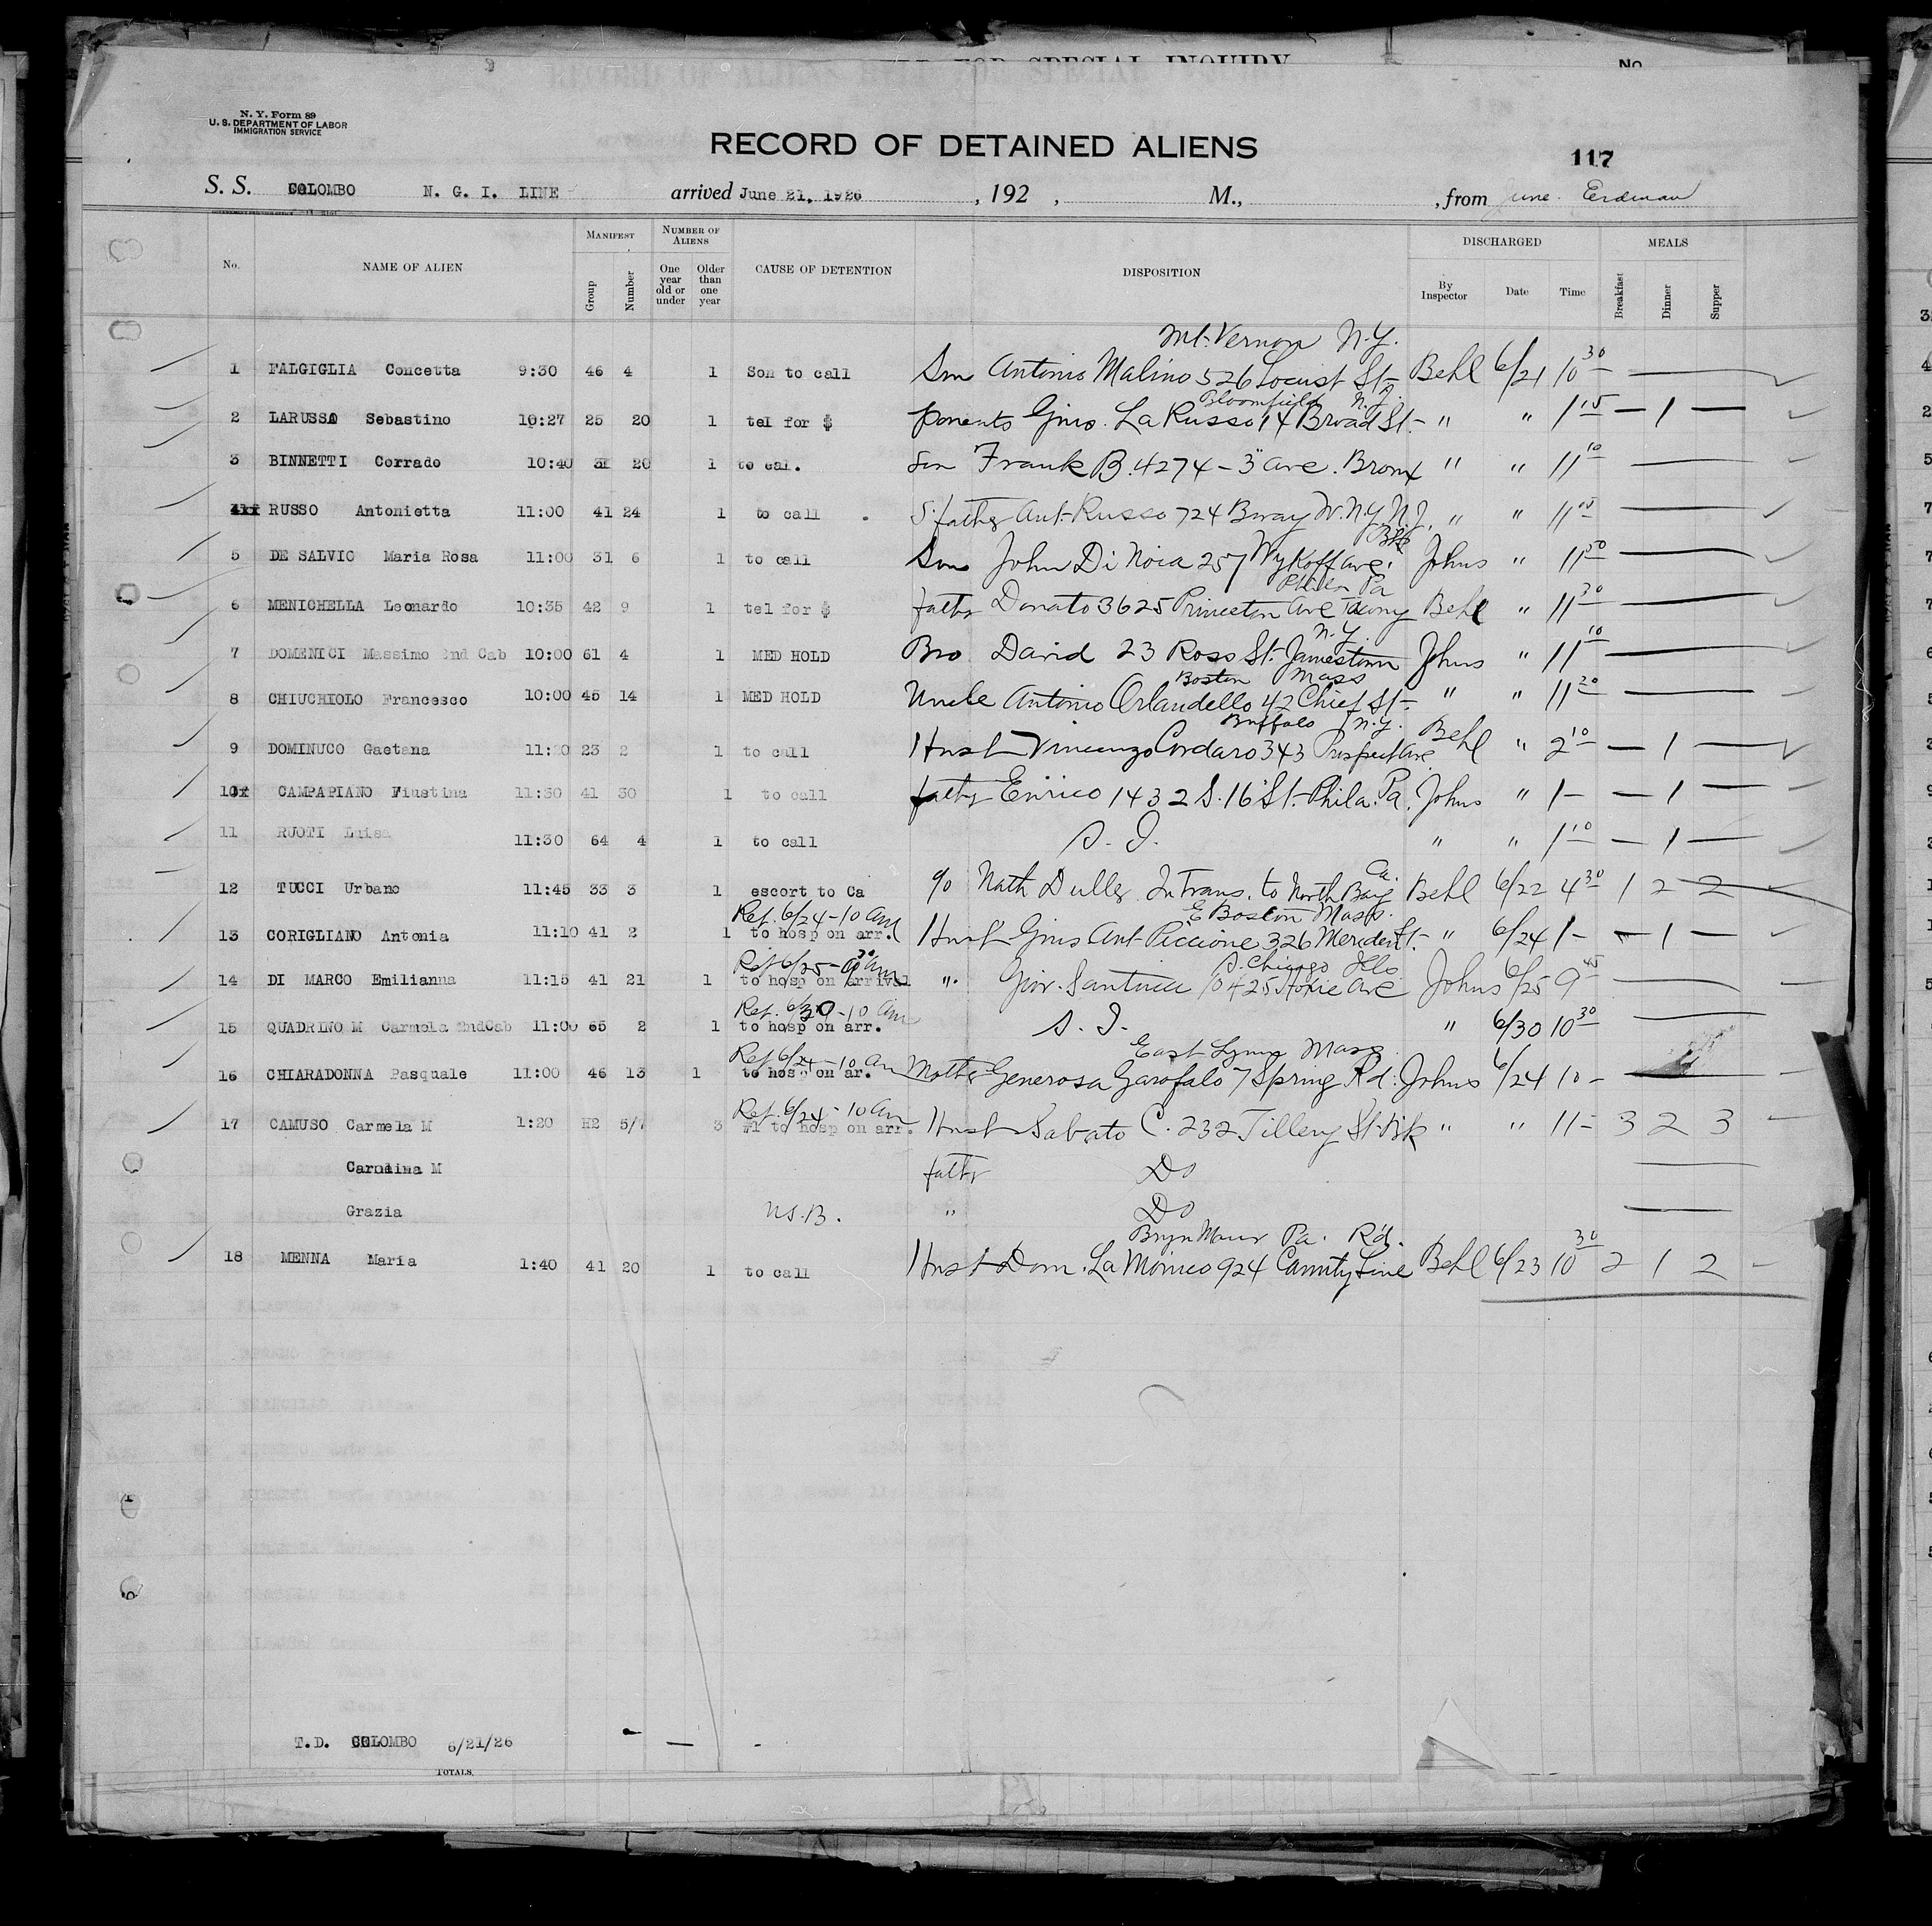 RECORD OF ALIENS HELD FOR SPECIAL INQUIRY No
N. Y. Form 89
U. S. DEPARTMENT OF LABOR
IMMIGRATION SERVICE
RECORD OF DETAINED ALIENS
117
S. S. COLOMBO N. G. I. LINE arrived June 21, 1926 , 192 , M., , from June Erdman
No. NAME OF ALIEN MANIFEST Group Number NUMBER OF ALIENS One year old or under Older than one year CAUSE OF DETENTION DISPOSITION DISCHARGED By Inspector Date Time MEALS Breakfast Dinner Supper
Mt. Vernon N.Y.
1 FALGIGLIA Concetta 9:30 46 4 1 Son to call Son Antonio Malino 526 Locust St- Behl 6/21 10 30 —
Bloomfield N.J.
2 LARUSSO Sebastino 10:27 25 20 1 tel for $ parents Gius. LaRusso 14 Broad St- " " 1 15 — 1 —
3 BINNETTI Corrado 10:40 31 20 1 to cal. Son Frank B. 4274 - 3" ave. Bronx " " 11 10 —
4 RUSSO Antonietta 11:00 41 24 1 to call S. father Ant. Russo 724 Bway W.N.Y. N.J. " " 11 15 —
Bk
5 DE SALVIC Maria Rosa 11:00 31 6 1 to call Son John Di Noia 257 Wykoff ave. Johns " 11 50 —
Phila Pa
6 MENICHELLA Leonardo 10:35 42 9 1 tel for $ father Donato 3625 Princeton ave Tacony Behl " 11 30 —
N.Y.
7 DOMENICI Massimo 2nd Cab 10:00 61 4 1 MED HOLD Bro David 23 Ross St. Jamestown Johns " 11 10 —
Boston Mass
8 CHIUCHIOLO Francesco 10:00 45 14 1 MED HOLD Uncle Antonio Orlandello 42 Chief St- " " 11 20 —
Buffalo N.Y.
9 DOMINUCO Gaetana 11:20 23 2 1 to call Husb Vincenzo Cordaro 343 Prospect ave Behl " 2 10 — 1 —
10 CAMPAPIANO Fiustina 11:30 41 30 1 to call father Enrico 1432 S. 16" St. Phila. Pa. Johns " 1- — 1 —
11 RUOTI Luisa 11:30 64 4 1 to call S. I. " " 1 10 — 1 —
Ca.
12 TUCCI Urbano 11:45 33 3 1 escort to Ca c/o Nath Duller In Trans. to North Bay Behl 6/22 4 30 1 2 2
Ret. 6/24 - 10 am E Boston Mass.
13 CORIGLIANO Antonia 11:10 41 2 1 to hosp on arr. Husb Gius Ant Piccione 326 Meriden St- " 6/24 1- — 1 —
Ret 6/25 - 9 30 am S. Chicago Ills
14 DI MARCO Emilianna 11:15 41 21 1 to hosp on arrival " Giov. Santucci 10425 Hoxie ave Johns 6/25 9 45 —
Ret. 6/30 - 10 am
15 QUADRINO M Carmela 2ndCab 11:00 65 2 1 to hosp on arr. S. I. " 6/30 10 30 —
Ret 6/24 - 10 am East Lynn Mass
16 CHIARADONNA Pasquale 11:00 46 13 1 to hosp on ar. Mother Generosa Garofalo 7 Spring Rd. Johns 6/24 10 - —
Ret. 6/24 - 10 am
17 CAMUSO Carmela M 1:20 H2 5/7 3 #1 to hosp on arr. Husb Sabato C. 232 Tillery St. Bk " " 11- 3 2 3
Carolina M father Do —
Grazia U.S.B. " Do —
Bryn Mawr Pa. Rd.
18 MENNA Maria 1:40 41 20 1 to call Husb Dom. La Monico 924 County Line Behl 6/23 10 30 2 1 2
T.D. COLOMBO 6/21/26
TOTALS,